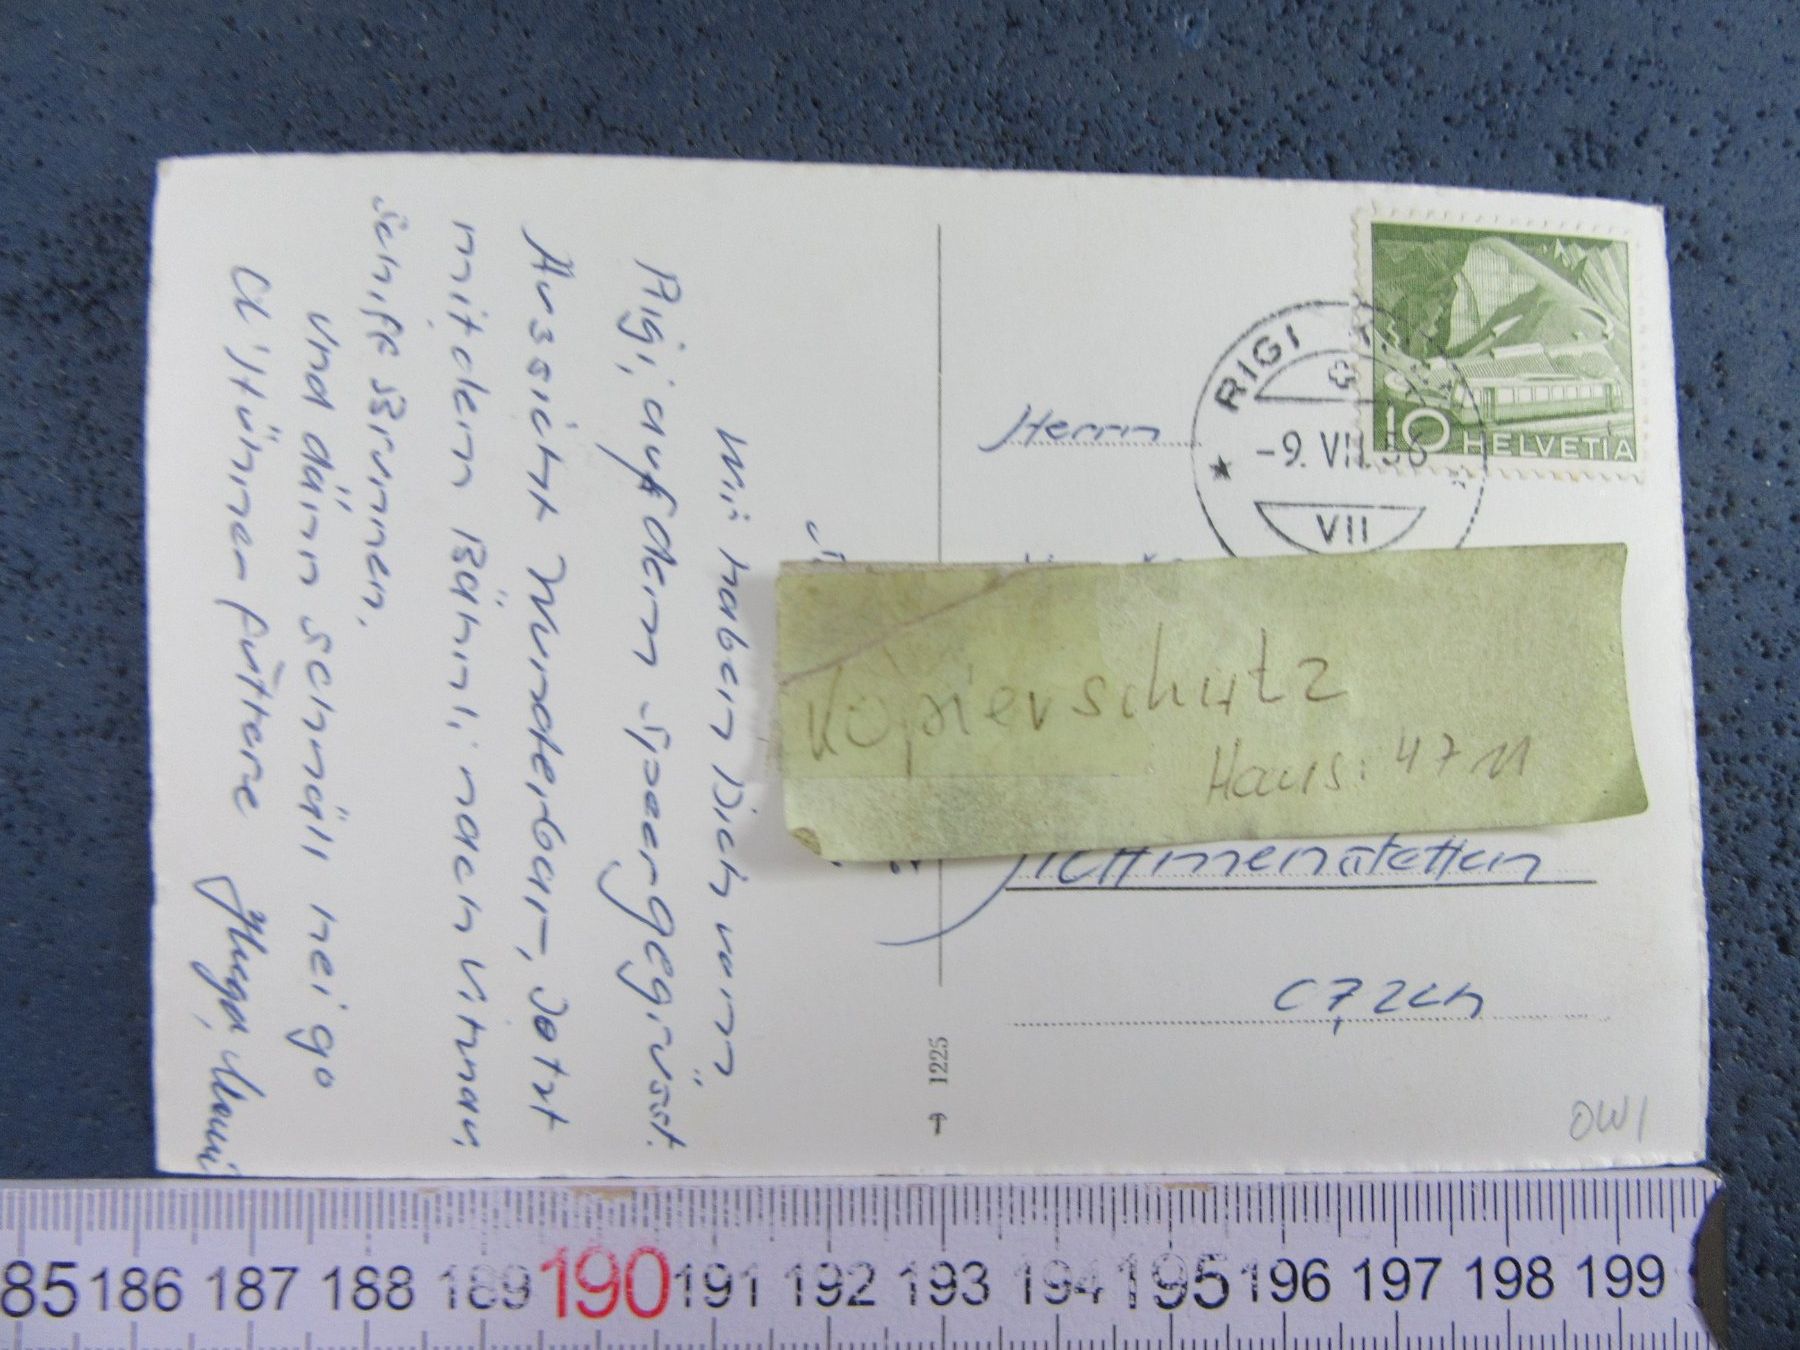 Wir haben Dich vom
Rigi, auf dem Speergegrüsst.
Aussicht Wunderbar, Jetzt
mit dem Bähnli nach Vitznau,
Schiff Brunnen,
und dänn schnäll hei go
d'Hüner füttere
RIGI
-9. VII. 56
VII
10 HELVETIA
Herrn
Kopierschutz
Haus: 4711
1225
OWI
85 186 187 188 189 190 191 192 193 194 195 196 197 198 199